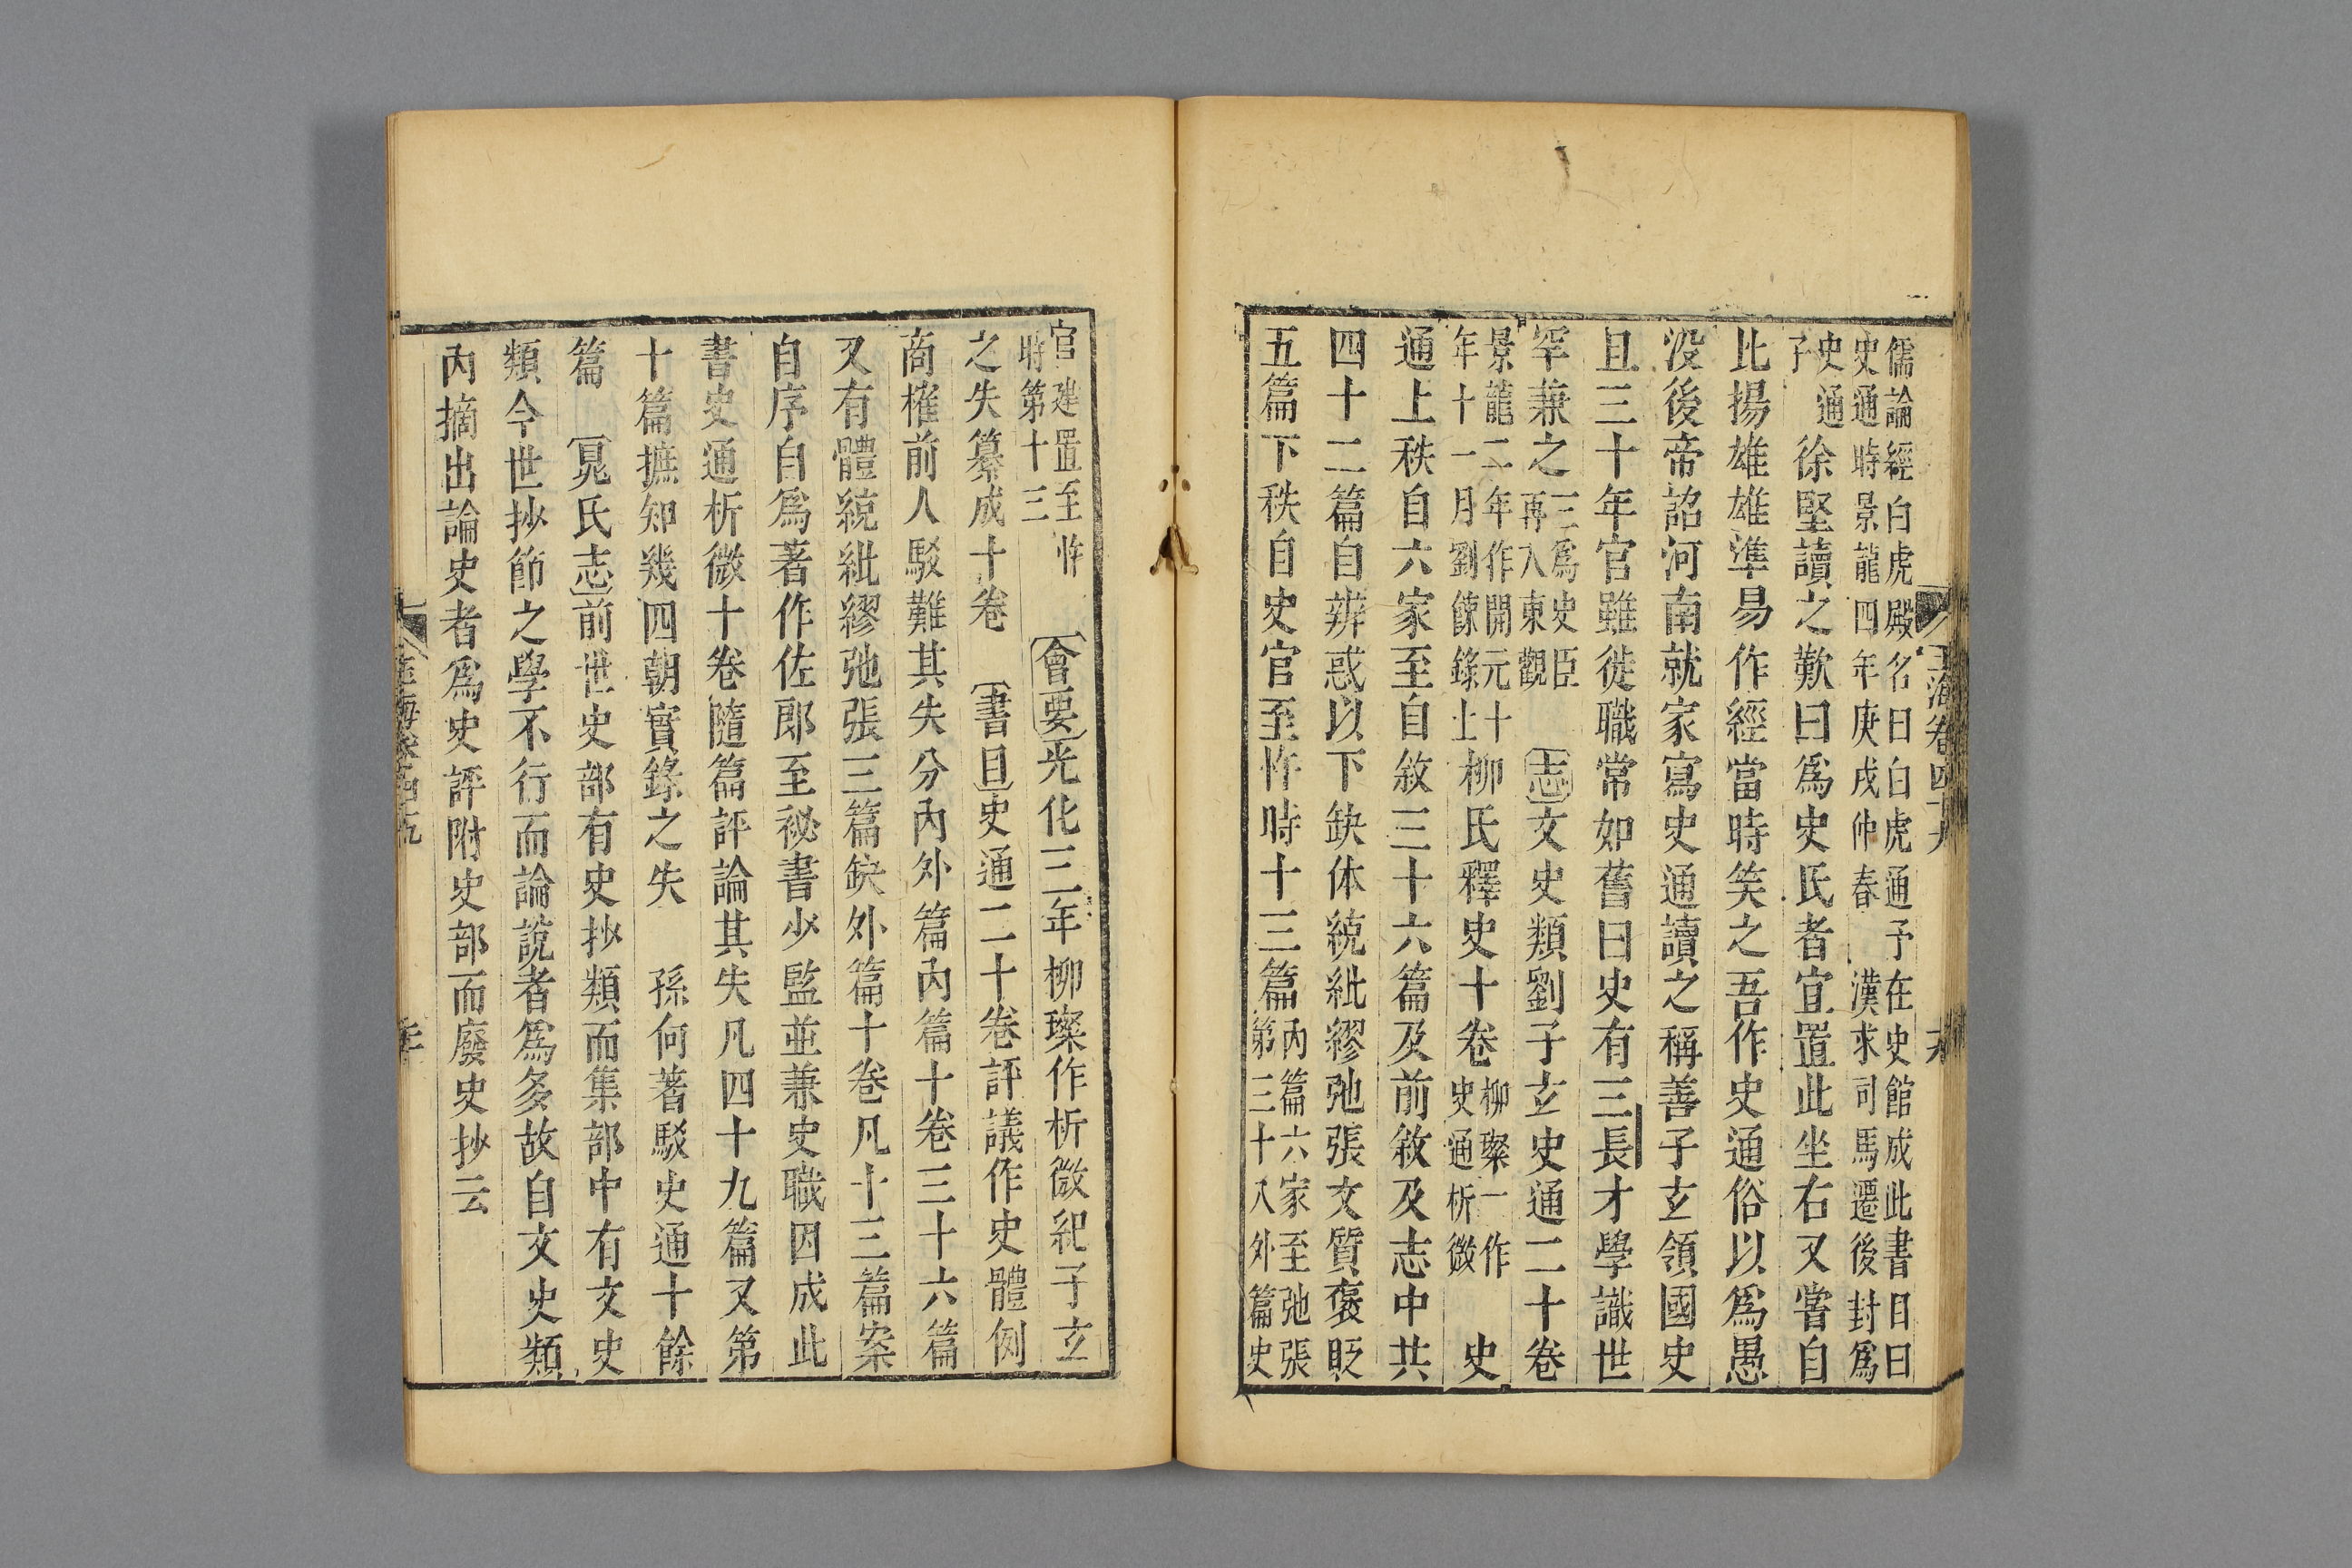 玉海卷四十九
儒論經白虎殿名曰白虎通予在史館成此書目曰
史通時景龍四年庚戌仲春 漢求司馬遷後封爲
史通
子
徐堅讀之歎曰爲史氏者宜置此坐右又嘗自
比揚雄雄準易作經當時笑之吾作史通俗以爲愚
没後帝詔河南就家寫史通讀之稱善子玄領國史
且三十年官雖徙職常如舊曰史有三長才學識世
罕兼之
三爲史臣
再入東觀
志文史類劉子玄史通二十卷
景龍二年作開元十
年十一月劉餗錄上
柳氏釋史十卷
柳璨一作
史通析微
史
通上秩自六家至自敘三十六篇及前敘及志中共
四十二篇自辨惑以下缺体統紕繆弛張文質褒貶
五篇下秩自史官至忤時十三篇
内篇六家至弛張
第三十八外篇史
官建置至忤
時第十三
會要光化三年柳璨作析微紀子玄
之失纂成十卷 書目史通二十卷評議作史體例
商榷前人駁難其失分内外篇内篇十卷三十六篇
又有體統紕繆弛張三篇缺外篇十卷凡十三篇案
自序自爲著作佐郎至祕書少監並兼史職因成此
書史通析微十卷隨篇評論其失凡四十九篇又第
十篇摭知幾四朝實錄之失 孫何著駁史通十餘
篇 晁氏志前世史部有史抄類而集部中有文史
類今世抄節之學不行而論說者爲多故自文史類
内摘出論史者爲史評附史部而廢史抄云